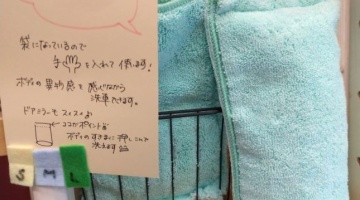 袋になっているので
手を入れて使います!
ボディの異物感を感じながら
洗車できます。
ドアミラーもスイスイ♪
ココがポイント
ボディのすきまに押しこんで
洗えます
S M L